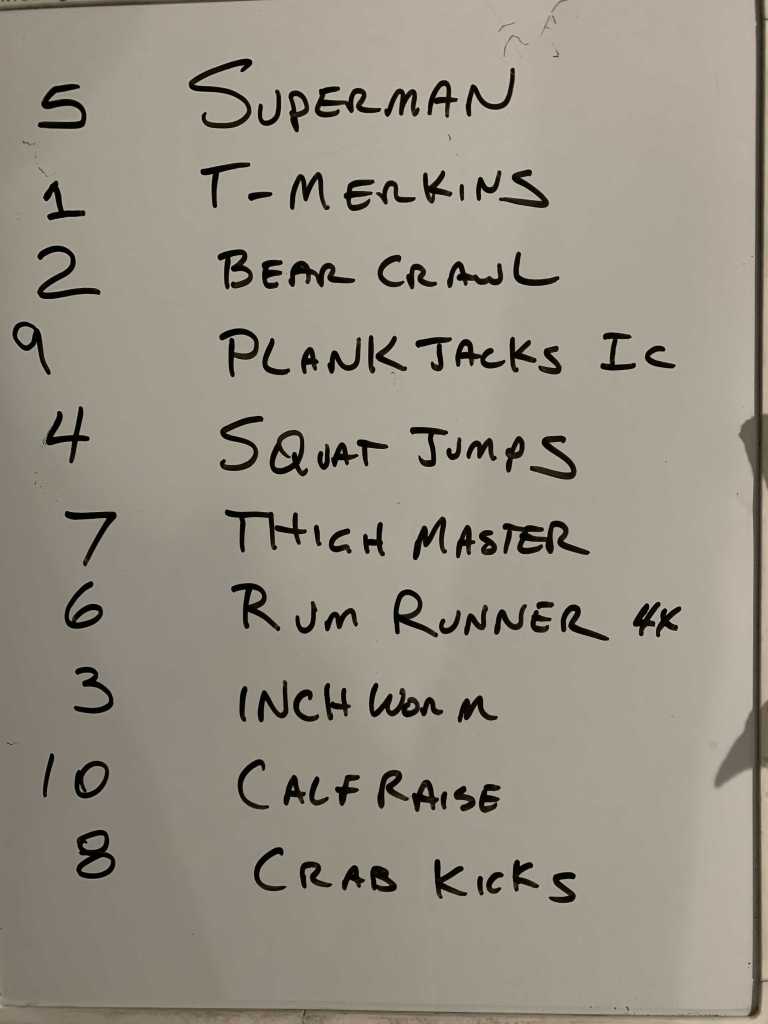 5 SUPERMAN
1 T-MERKINS
2 BEAR CRAWL
9 PLANK JACKS IC
4 SQUAT JUMPS
7 THIGH MASTER
6 RUM RUNNER 4X
3 INCH WORM
10 CALF RAISE
8 CRAB KICKS